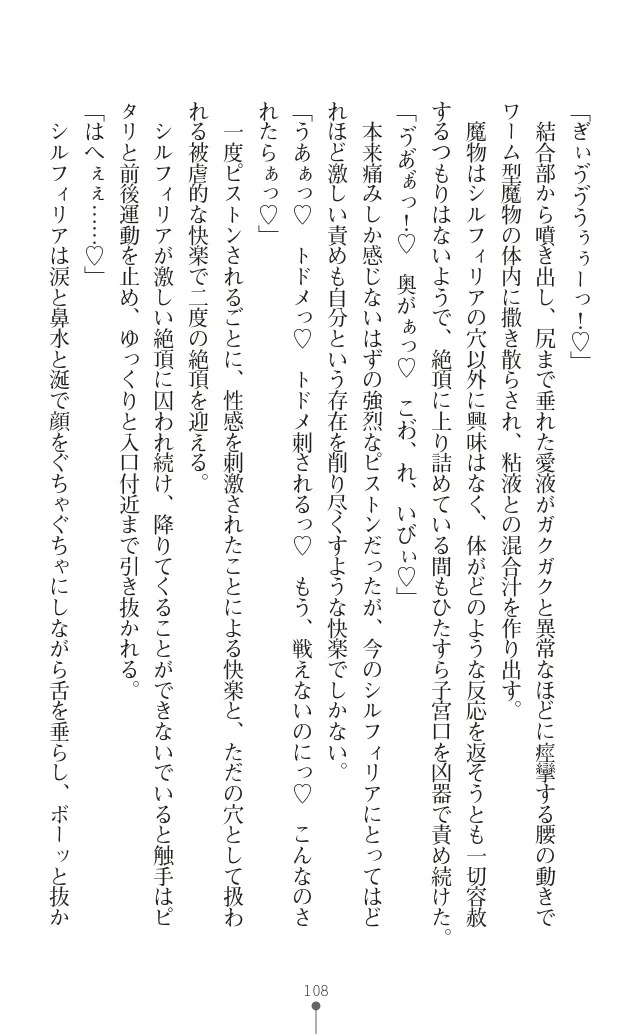 「ぎぃゔゔうぅぅーっ！♡」
　結合部から噴き出し、尻まで垂れた愛液がガクガクと異常なほどに痙攣する腰の動きで
ワーム型魔物の体内に撒き散らされ、粘液との混合汁を作り出す。
　魔物はシルフィリアの穴以外に興味はなく、体がどのような反応を返そうとも一切容赦
するつもりはないようで、絶頂に上り詰めている間もひたすら子宮口を凶器で責め続けた。
「ゔあ゙ぁ゙っ！♡　奥がぁっ♡　こわ゙、れ、いびぃ♡」
　本来痛みしか感じないはずの強烈なピストンだったが、今のシルフィリアにとってはど
れほど激しい責めも自分という存在を削り尽くすような快楽でしかない。
「うあぁっ♡　トドメっ♡　トドメ刺されるっ♡　もう、戦えないのにっ♡　こんなのさ
れたらぁっ♡」
　一度ピストンされるごとに、性感を刺激されたことによる快楽と、ただの穴として扱わ
れる被虐的な快楽で二度の絶頂を迎える。
　シルフィリアが激しい絶頂に囚われ続け、降りてくることができないでいると触手はピ
タリと前後運動を止め、ゆっくりと入口付近まで引き抜かれる。
「はへぇぇ……♡」
　シルフィリアは涙と鼻水と涎で顔をぐちゃぐちゃにしながら舌を垂らし、ボーッと抜か
108